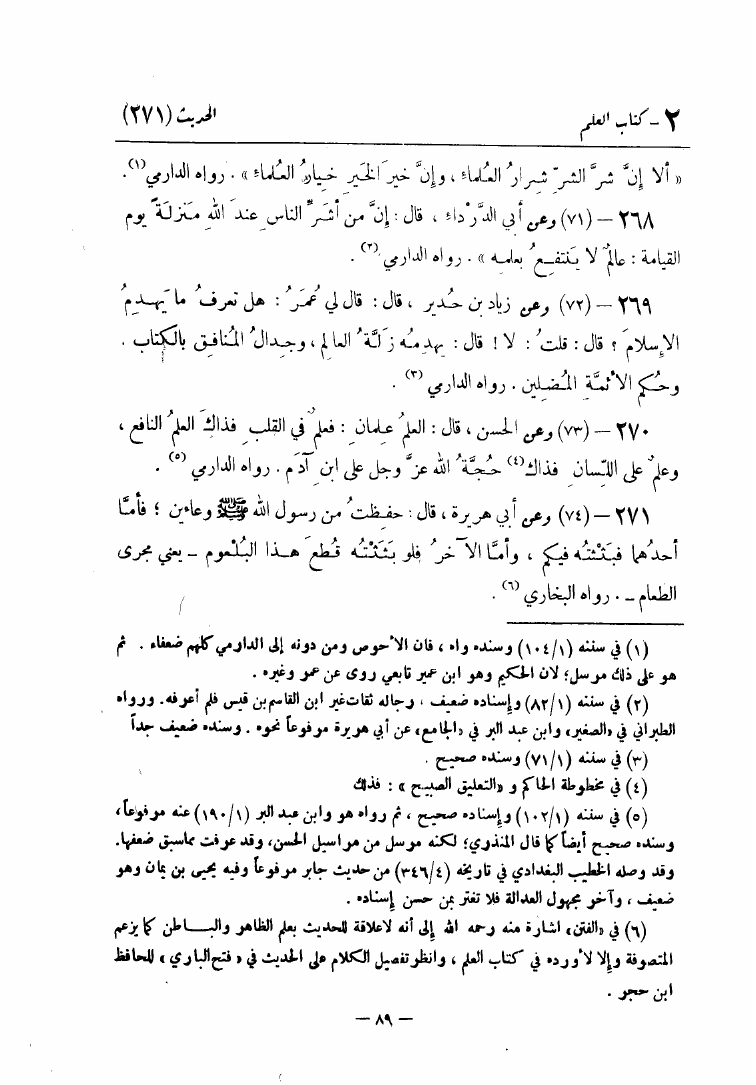 ٢ - كتاب العلم الحديث (٢٧١)
« ألا إنَّ شرَّ الشرِّ شرارُ العُلماءِ ، وإنَّ خيرَ الخيرِ خيارُ العُلماءِ » . رواه الدارمي(١).
٢٦٨ - (٧١) وعن أبي الدَّرْداءِ ، قال : إنَّ من أشَرِّ الناسِ عندَ اللهِ مَنزلةً يومَ
القيامة : عالمٌ لا يَنتفعُ بعلمه » . رواه الدارمي(٢) .
٢٦٩ - (٧٢) وعن زياد بن حُدير ، قال : قال لي عُمَرُ : هل تعرفُ ما يَهدِمُ
الإسلامَ ؟ قال : قلتُ : لا ! قال : يهدِمُه زَلَّةُ العالِمِ ، وجِدالُ المُنافقِ بالكِتاب .
وحُكم الأئمَّةِ المُضلين . رواه الدارمي(٣) .
٢٧٠ - (٧٣) وعن الحسن ، قال : العلمُ علمانِ : فعلمٌ في القلب فذاكَ العلمُ النافع ،
وعلمٌ على اللِّسانِ فذاك(٤) حُجَّةُ الله عزَّ وجل على ابنِ آدَم . رواه الدارمي(٥) .
٢٧١ - (٧٤) وعن أبي هريرة ، قال : حفِظتُ من رسول الله ﷺ وعاءين ؛ فأمَّا
أحدُهما فبَثثتُه فيكم ، وأمَّا الآخرُ فلو بَثَثتُه قُطعَ هذا البُلْعوم - يعني مجرى
الطعام - . رواه البخاري(٦) .
(١) في سننه (١٠٤/١) وسنده واه ، فان الأحوص ومن دونه إلى الدارمي كلهم ضعفاء . ثم
هو على ذلك مرسل؛ لان الحكيم وهو ابن عمير تابعي روى عن عمر وغيره .
(٢) في سننه (٨٢/١) وإسناده ضعيف ، رجاله ثقات غير ابن القاسم بن قيس فلم أعرفه. ورواه
الطبراني في «الصغير، وابن عبد البر في «الجامع، عن أبي هريرة مرفوعاً نحوه . وسنده ضعيف جداً
(٣) في سننه (٧١/١) وسنده صحيح .
(٤) في مخطوطة الحاكم و «التعليق الصبيح» : فذلك
(٥) في سننه (١٠٢/١) وإسناده صحيح ، ثم رواه هو وابن عبد البر (١٩٠/١) عنه مرفوعاً،
وسنده صحيح أيضاً كما قال المنذري؛ لكنه مرسل من مراسيل الحسن، وقد عرفت ماسبق ضعفها.
وقد وصله الخطيب البغدادي في تاريخه (٣٤٦/٤) من حديث جابر مرفوعاً وفيه يحيى بن يمان وهو
ضعيف ، وآخر مجهول العدالة فلا تغتر بمن حسن إسناده .
(٦) في «الفتن، اشارة منه رحمه الله إلى أنه لاعلاقة للحديث بعلم الظاهر والبـاطن كما يزعم
المتصوفة وإلا لأورده في كتاب العلم ، وانظر تفصيل الكلام على الحديث في « فتح الباري » للحافظ
ابن حجر .
- ٨٩ -